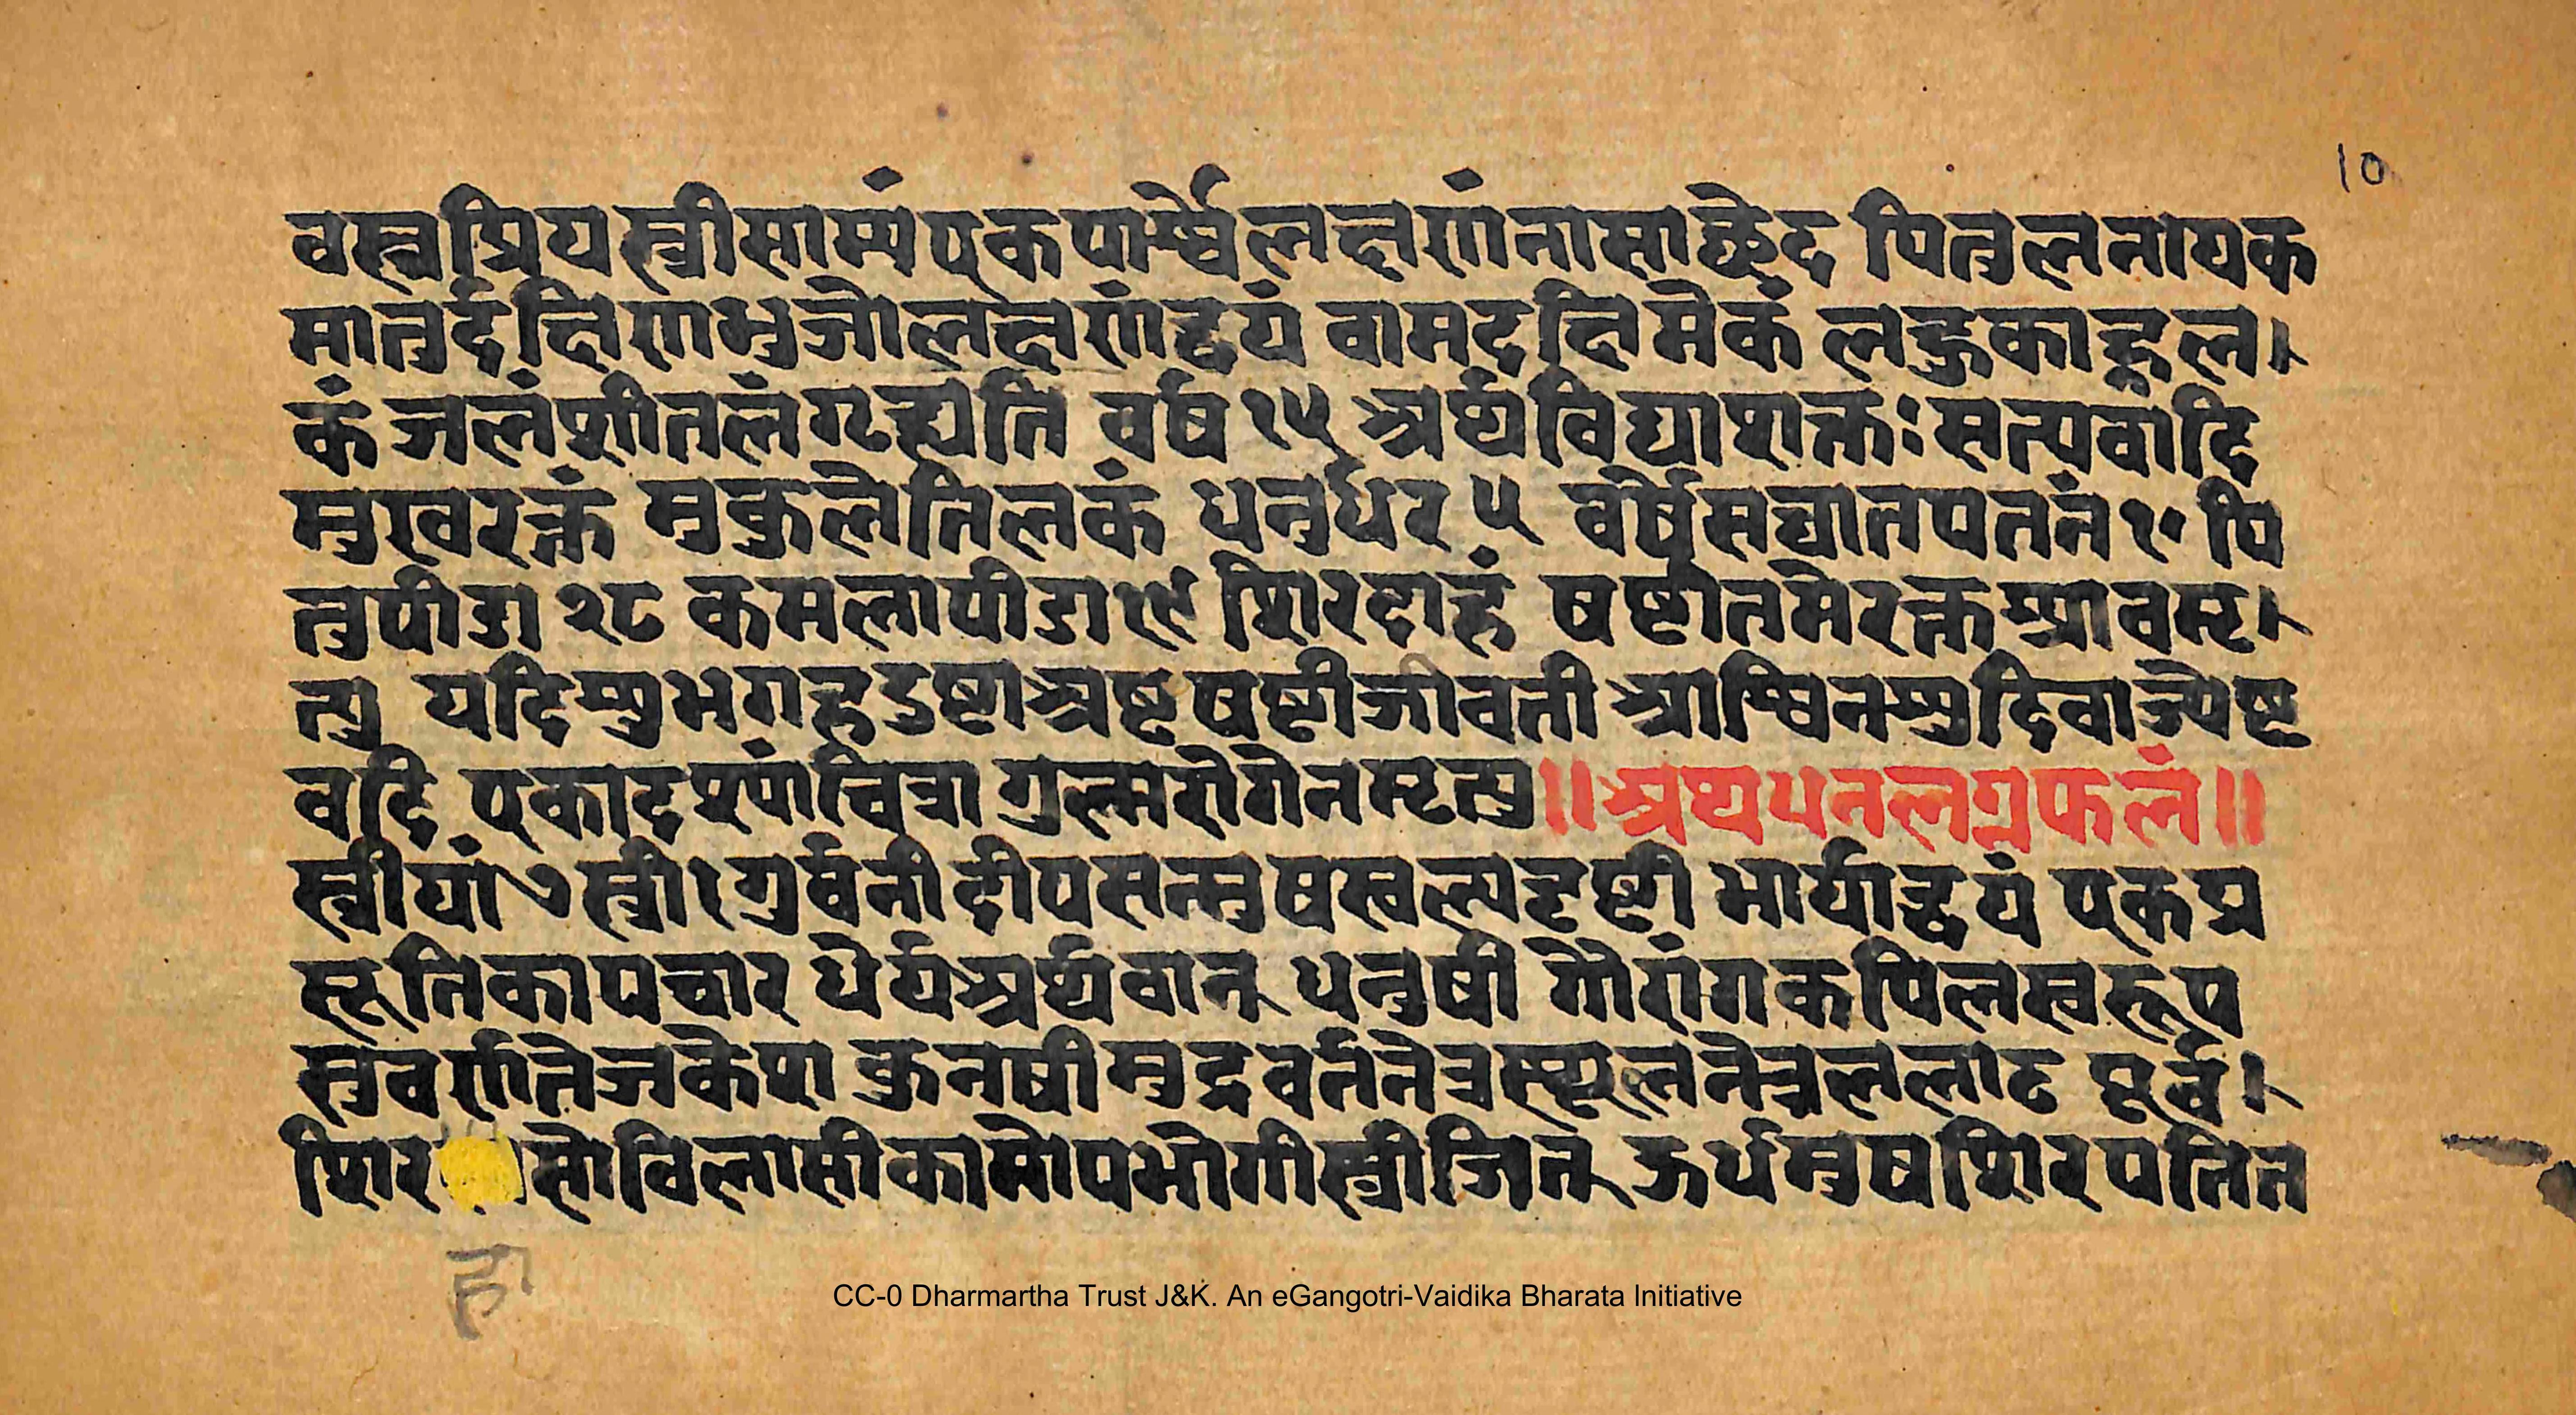 10
वस्त्रप्रियस्त्रीसाम्यंएकपार्श्वेलक्षणंनासाछेद पितृलनायक
मातुर्दक्षिणभुजोलक्षणंद्वयं वामदक्षिमेकं लड्डुकाद्रुल।
कं जलंशीतलंगृह्यति वर्ष १५ अर्थविद्याशक्तःसत्यवादि
मुखरक्तं मुकुलेतिलकं धनुर्धर ५ वर्षेसद्यातपतनं १॰ पि
तृपीडा २८ कमलापीडा १९ शिरदाहं षष्टीतमेरक्तश्रावमृ।
त्यु यदिशुभगहडुष्टाअष्टषष्टीजीवती आश्विनशुदिवाज्येष्ट
वदि एकादश्यांचित्रा गुल्मरोगेनमृत्यु॥ अथधनलग्नफलं॥
स्त्रीयां७स्त्री१गुर्वनी दीपसन्तुषस्वल्पदृष्टी भार्याद्वयं एकप्र
सूतिकापचार धैर्यअर्थवान् धनुषी गौरांगकपिलस्वरूप
सुवर्णतेजकेशा कुनषीमुद्रवर्तनेत्रस्थूलनेत्रललाट पूर्व।
शिर सोविलासीकामोपभोगीस्त्रीजित् ऊर्धमुषशिरपतित
हा
CC-0 Dharmartha Trust J&K. An eGangotri-Vaidika Bharata Initiative